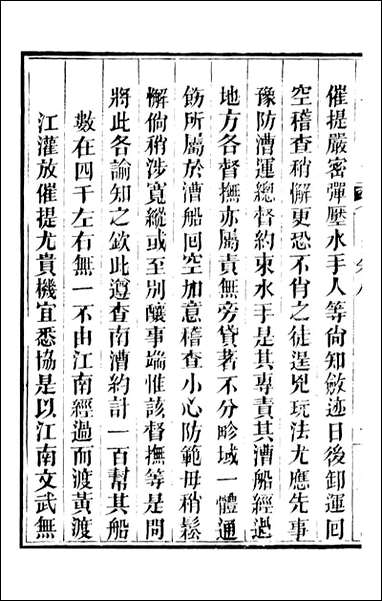 催提嚴密彈壓水手人等尙知斂迹日後卸運回
空稽查稍懈更恐不肖之徒逞兇玩法尤應先事
豫防漕運總督約束水手是其專責其漕船經過
地方各督撫亦屬責無旁貸著不分畛域一體通
飭所屬於漕船回空加意稽查小心防範毋稍鬆
懈倘稍涉寬縱或至別釀事端惟該督撫等是問
將此各諭知之欽此遵查南漕約計一百幫其船
數在四千左右無一不由江南經過而渡黃渡
江灌放催提尤貴機宜悉協是以江南文武無